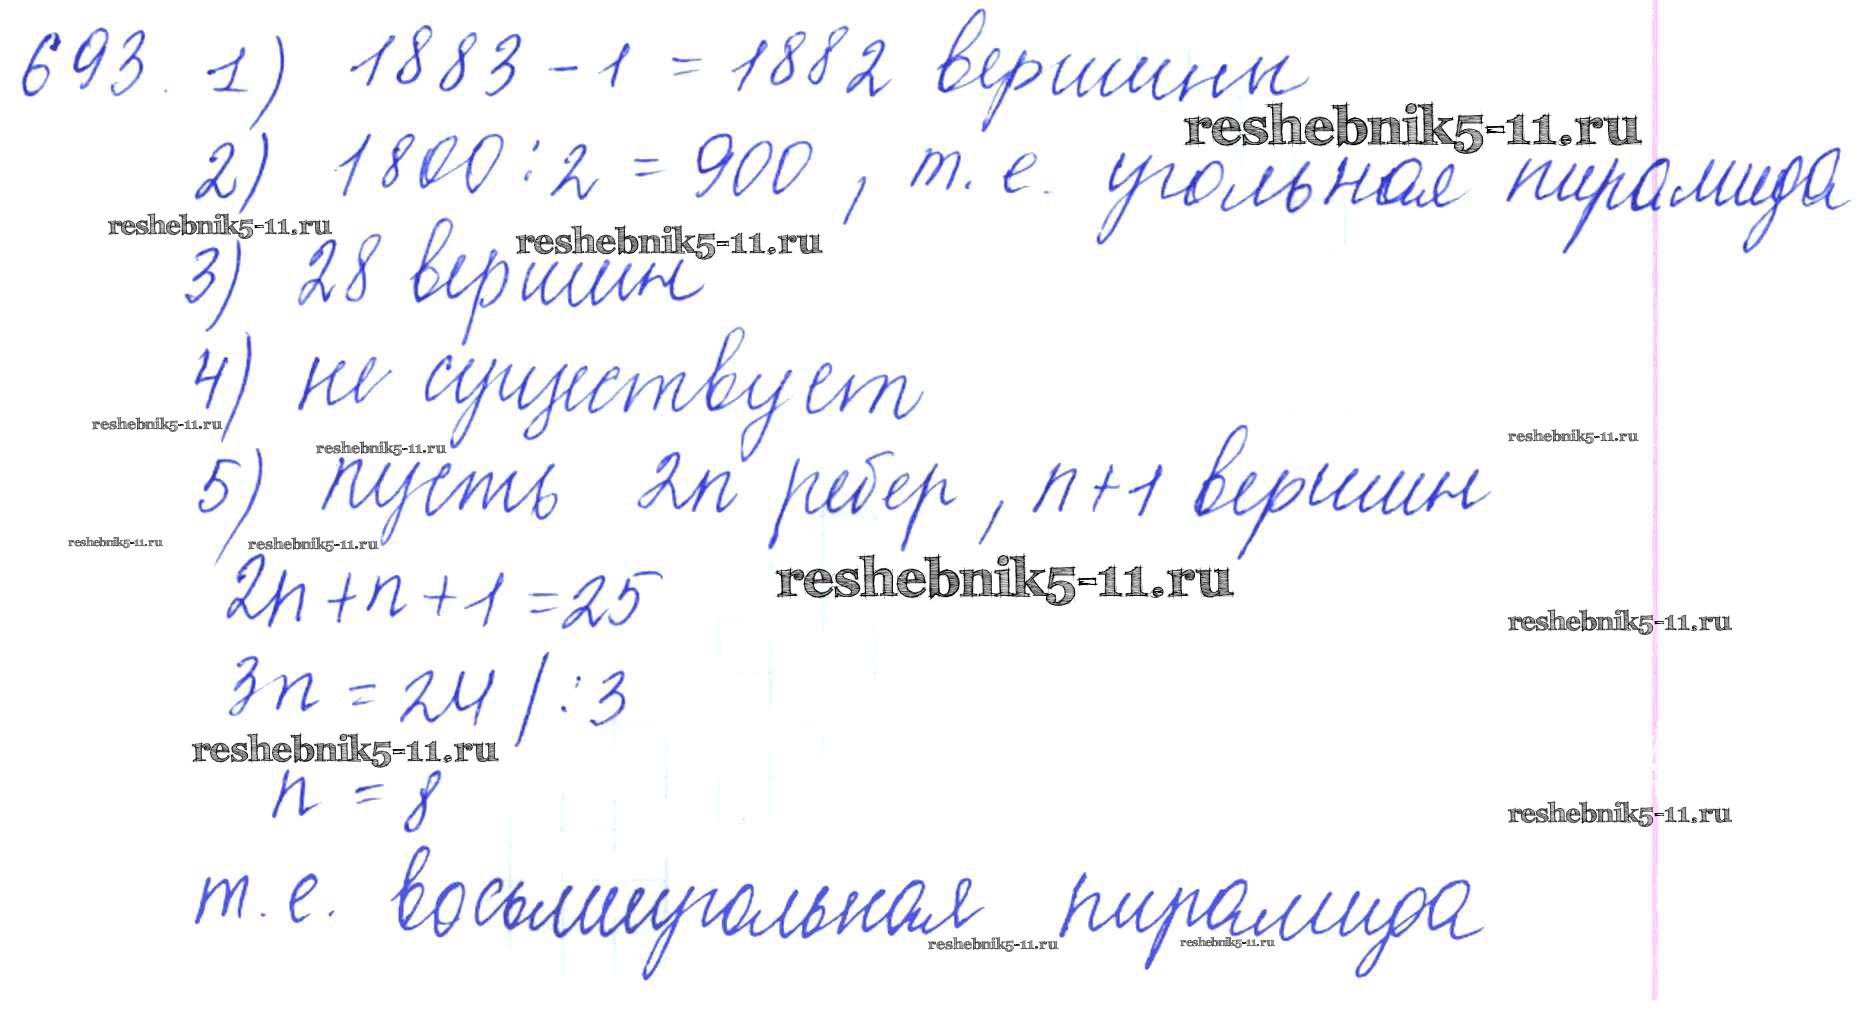 693. 1) 1883 - 1 = 1882 вершины
reshebnik5-11.ru
2) 1800 : 2 = 900, т.е. угольная пирамида
reshebnik5-11.ru
reshebnik5-11.ru
3) 28 вершин
4) не существует
reshebnik5-11.ru
reshebnik5-11.ru
reshebnik5-11.ru
5) пусть 2n ребер, n+1 вершин
reshebnik5-11.ru
reshebnik5-11.ru
2n + n + 1 = 25
reshebnik5-11.ru
reshebnik5-11.ru
3n = 24 / : 3
reshebnik5-11.ru
n = 8
reshebnik5-11.ru
т.е. восьмиугольная пирамида
reshebnik5-11.ru
reshebnik5-11.ru